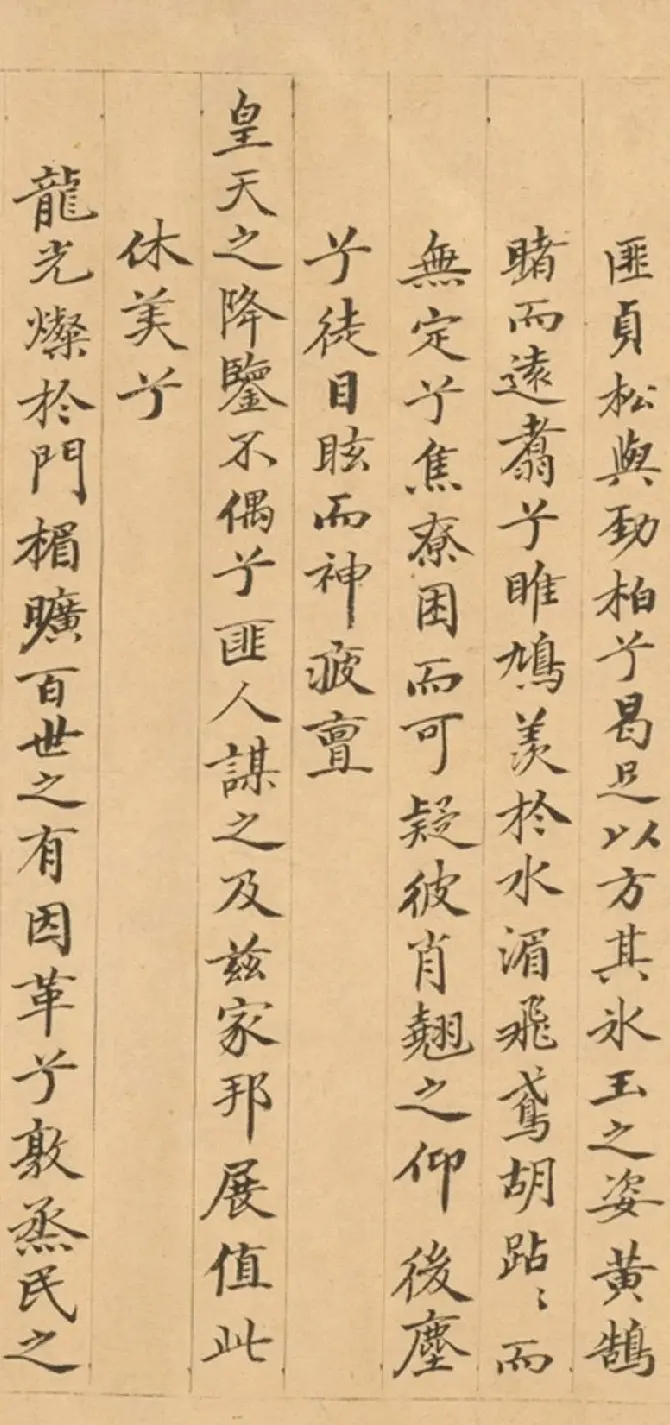 匪貞松與勁柏兮曷足以方其氷玉之姿黄鵠
睹而遠翥兮雎鳩羨於水湄飛鳶胡跕〻而
無定兮焦寮困而可疑彼肖翹之仰後塵
兮徒目眩而神疲亶
皇天之降鑒不偶兮匪人謀之及兹家邦展值此
休美兮
龍光燦於門楣曠百世之有因革兮敦烝民之